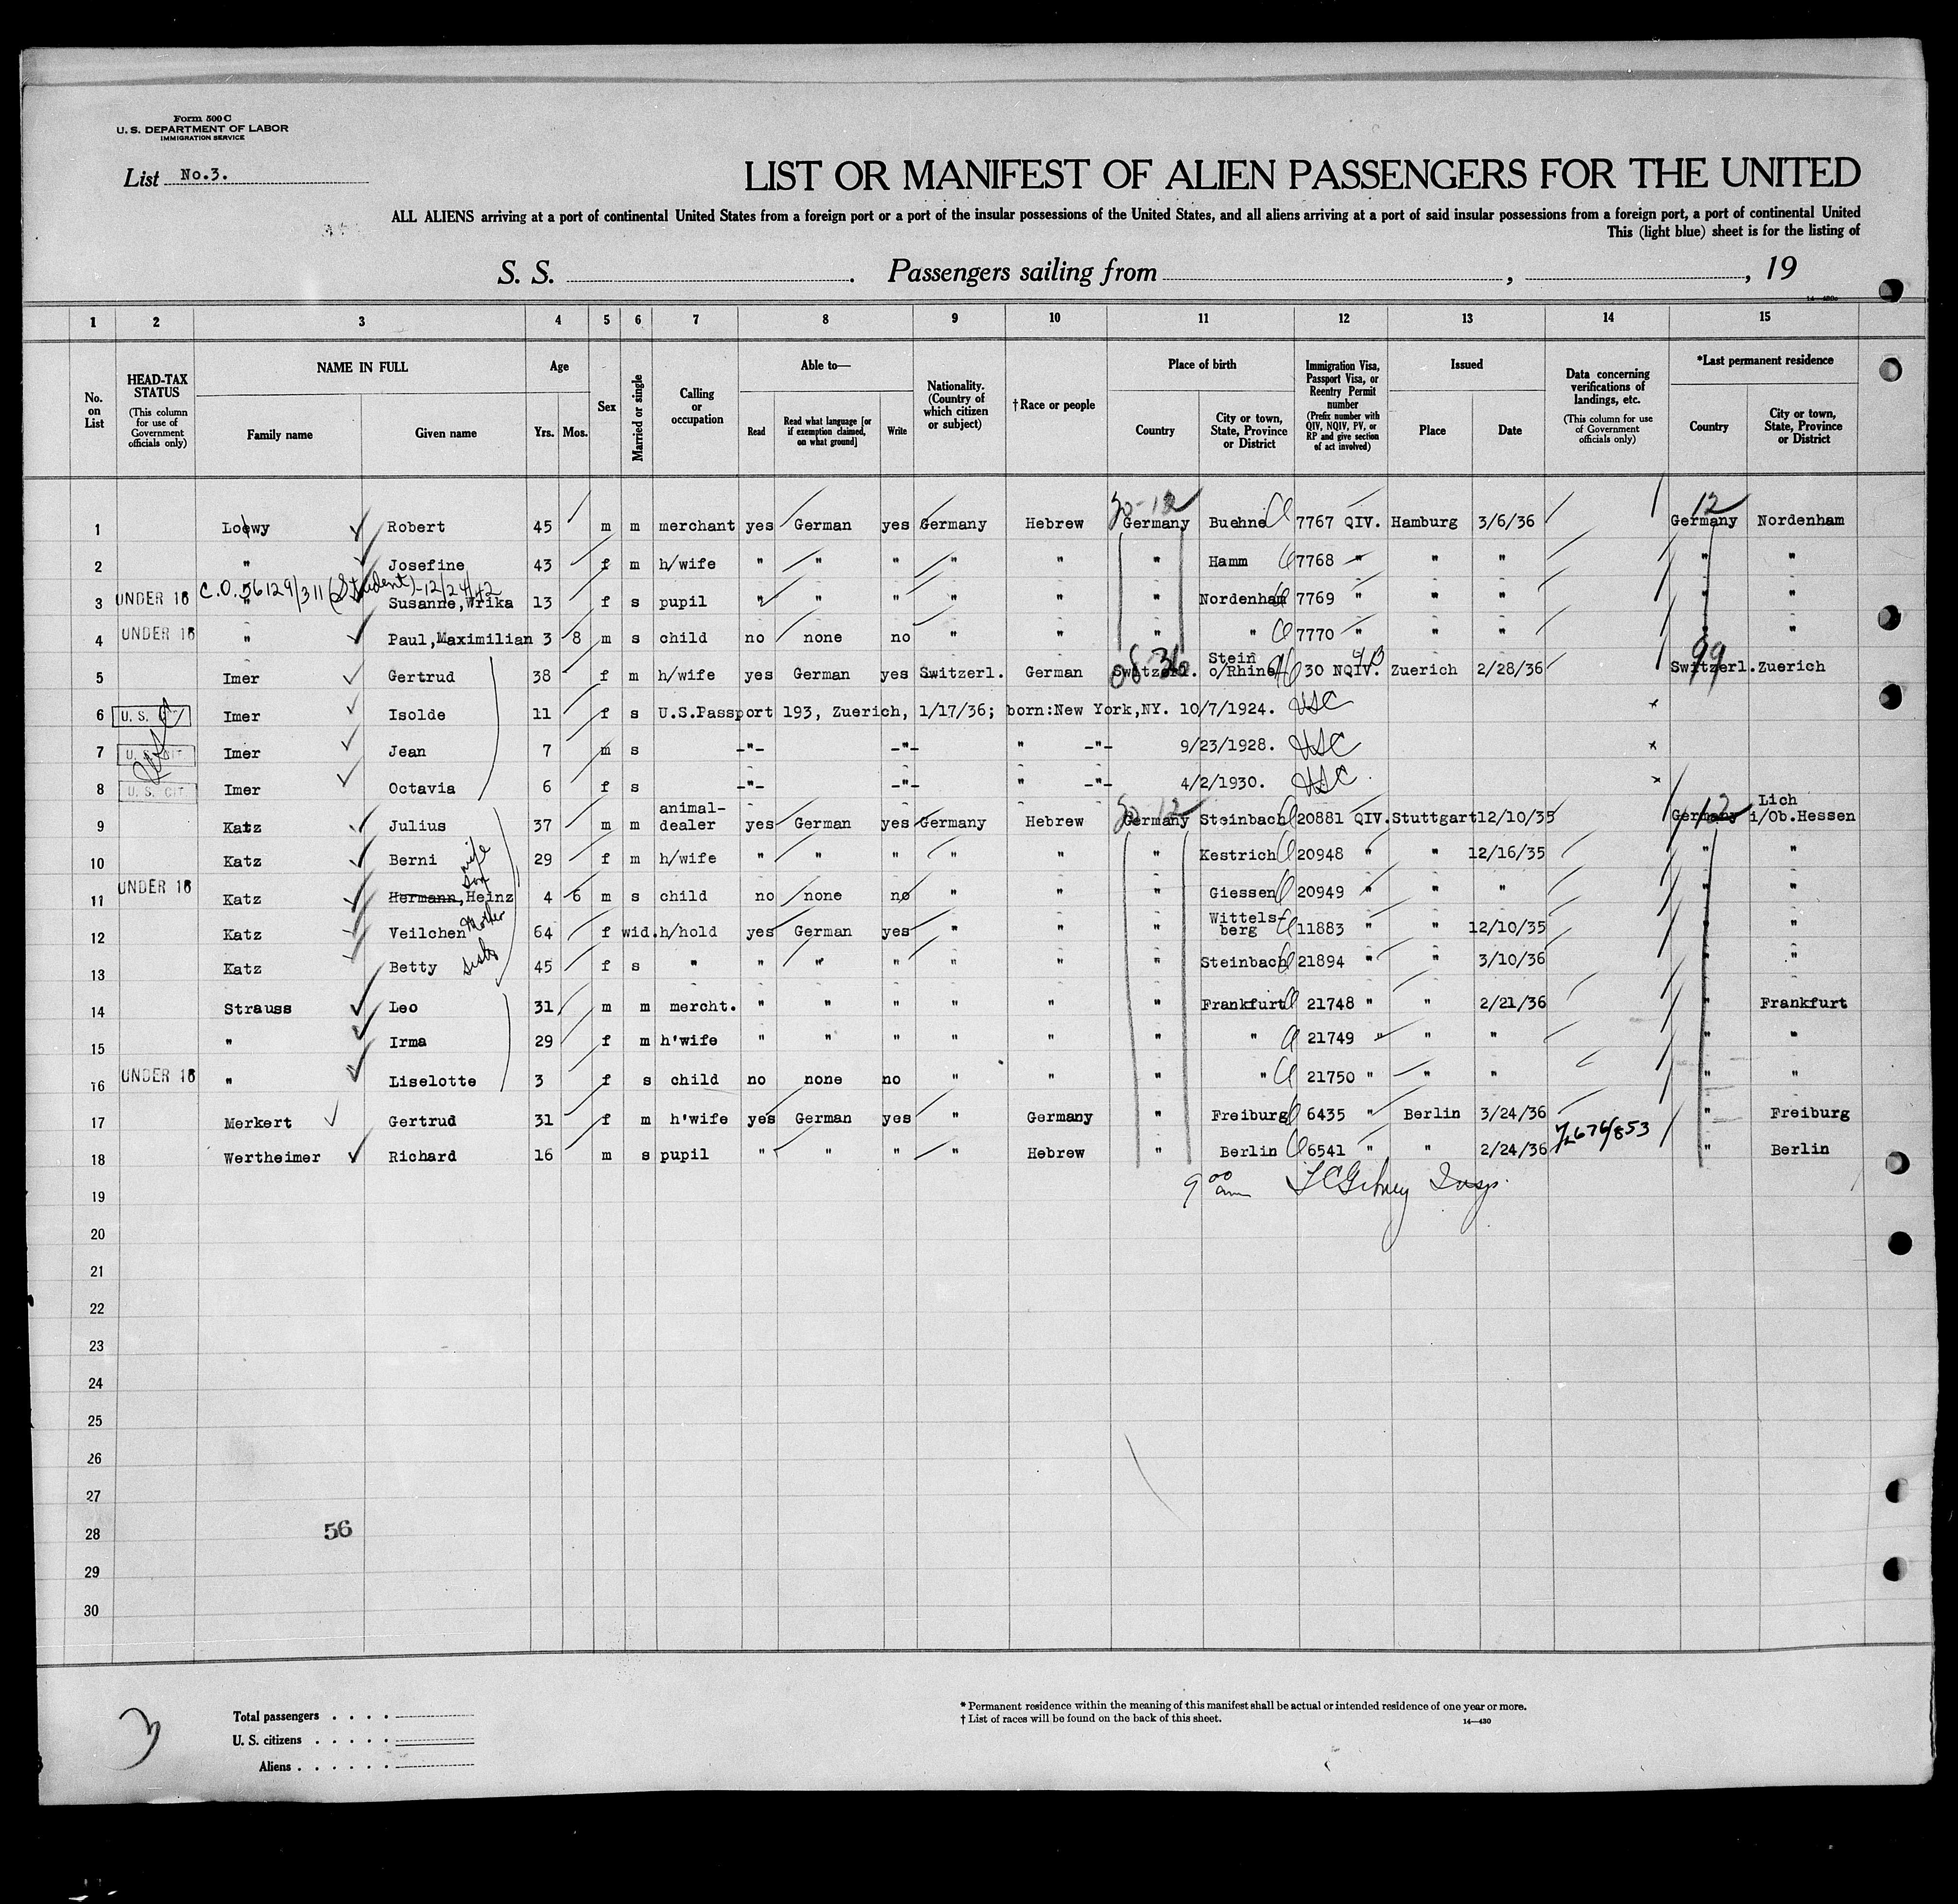 Form 500 C
U. S. DEPARTMENT OF LABOR
IMMIGRATION SERVICE
List No.3.
LIST OR MANIFEST OF ALIEN PASSENGERS FOR THE UNITED
ALL ALIENS arriving at a port of continental United States from a foreign port or a port of the insular possessions of the United States, and all aliens arriving at a port of said insular possessions from a foreign port, a port of continental United
This (light blue) sheet is for the listing of
S. S. . Passengers sailing from , , 19
1 2 3 4 5 6 7 8 9 10 11 12 13 14 15
No. on List
HEAD-TAX STATUS (This column for use of Government officials only)
NAME IN FULL Family name Given name
Age Yrs. Mos.
Sex
Married or single
Calling or occupation
Able to— Read Read what language [or if exemption claimed, on what ground] Write
Nationality. (Country of which citizen or subject)
†Race or people
Place of birth Country City or town, State, Province or District
Immigration Visa, Passport Visa, or Reentry Permit number (Prefix number with QIV, NQIV, PV, or RP and give section of act involved)
Issued Place Date
Data concerning verifications of landings, etc. (This column for use of Government officials only)
*Last permanent residence Country City or town, State, Province or District
1 Loewy Robert 45 m m merchant yes German yes Germany Hebrew Germany Buehne 7767 QIV. Hamburg 3/6/36 12 Germany Nordenham
2 " Josefine 43 f m h/wife " " " " " " Hamm 7768 " " " " "
C.O. 56129/311 (Student)-12/24/42
3 UNDER 16 " Susanne,Wrika 13 f s pupil " " " " " " Nordenham 7769 " " " " "
4 UNDER 16 " Paul,Maximilian 3 8 m s child no none no " " " " 7770 " " " " "
5 Imer Gertrud 38 f m h/wife yes German yes Switzerl. German Switzerl. Stein o/Rhine 30 NQIV. Zuerich 2/28/36 99 Switzerl. Zuerich
6 U. S. CIT Imer Isolde 11 f s U.S.Passport 193, Zuerich, 1/17/36; born:New York,NY. 10/7/1924. USC x
7 U. S. CIT Imer Jean 7 m s -"- -"- " -"- 9/23/1928. USC x
8 U. S. CIT Imer Octavia 6 f s -"- -"- " -"- 4/2/1930. USC x
9 Katz Julius 37 m m animal-dealer yes German yes Germany Hebrew Germany Steinbach 20881 QIV. Stuttgart 12/10/35 12 Germany Lich i/Ob.Hessen
10 Katz Berni wife 29 f m h/wife " " " " " " Kestrich 20948 " " 12/16/35 " "
11 UNDER 16 Katz Hermann, Heinz son 4 6 m s child no none no " " " Giessen 20949 " " " " "
12 Katz Veilchen Mother 64 f wid. h/hold yes German yes " " " Wittels-berg 11883 " " 12/10/35 " "
13 Katz Betty 45 f s " " " " " " " Steinbach 21894 " " 3/10/36 " "
14 Strauss Leo 31 m m mercht. " " " " " " Frankfurt 21748 " " 2/21/36 " Frankfurt
15 " Irma 29 f m h'wife " " " " " " " 21749 " " " " "
16 UNDER 16 " Liselotte 3 f s child no none no " " " " 21750 " " " " "
17 Merkert Gertrud 31 f m h'wife yes German yes " Germany " Freiburg 6435 " Berlin 3/24/36 " Freiburg
18 Wertheimer Richard 16 m s pupil " " " " Hebrew " Berlin 6541 " " 2/24/36 " Berlin
19 9 00 am
20
21
22
23
24
25
26
27
28 56
29
30
3
Total passengers . . . .
U. S. citizens . . . . .
Aliens . . . . . .
* Permanent residence within the meaning of this manifest shall be actual or intended residence of one year or more.
† List of races will be found on the back of this sheet.
14—430